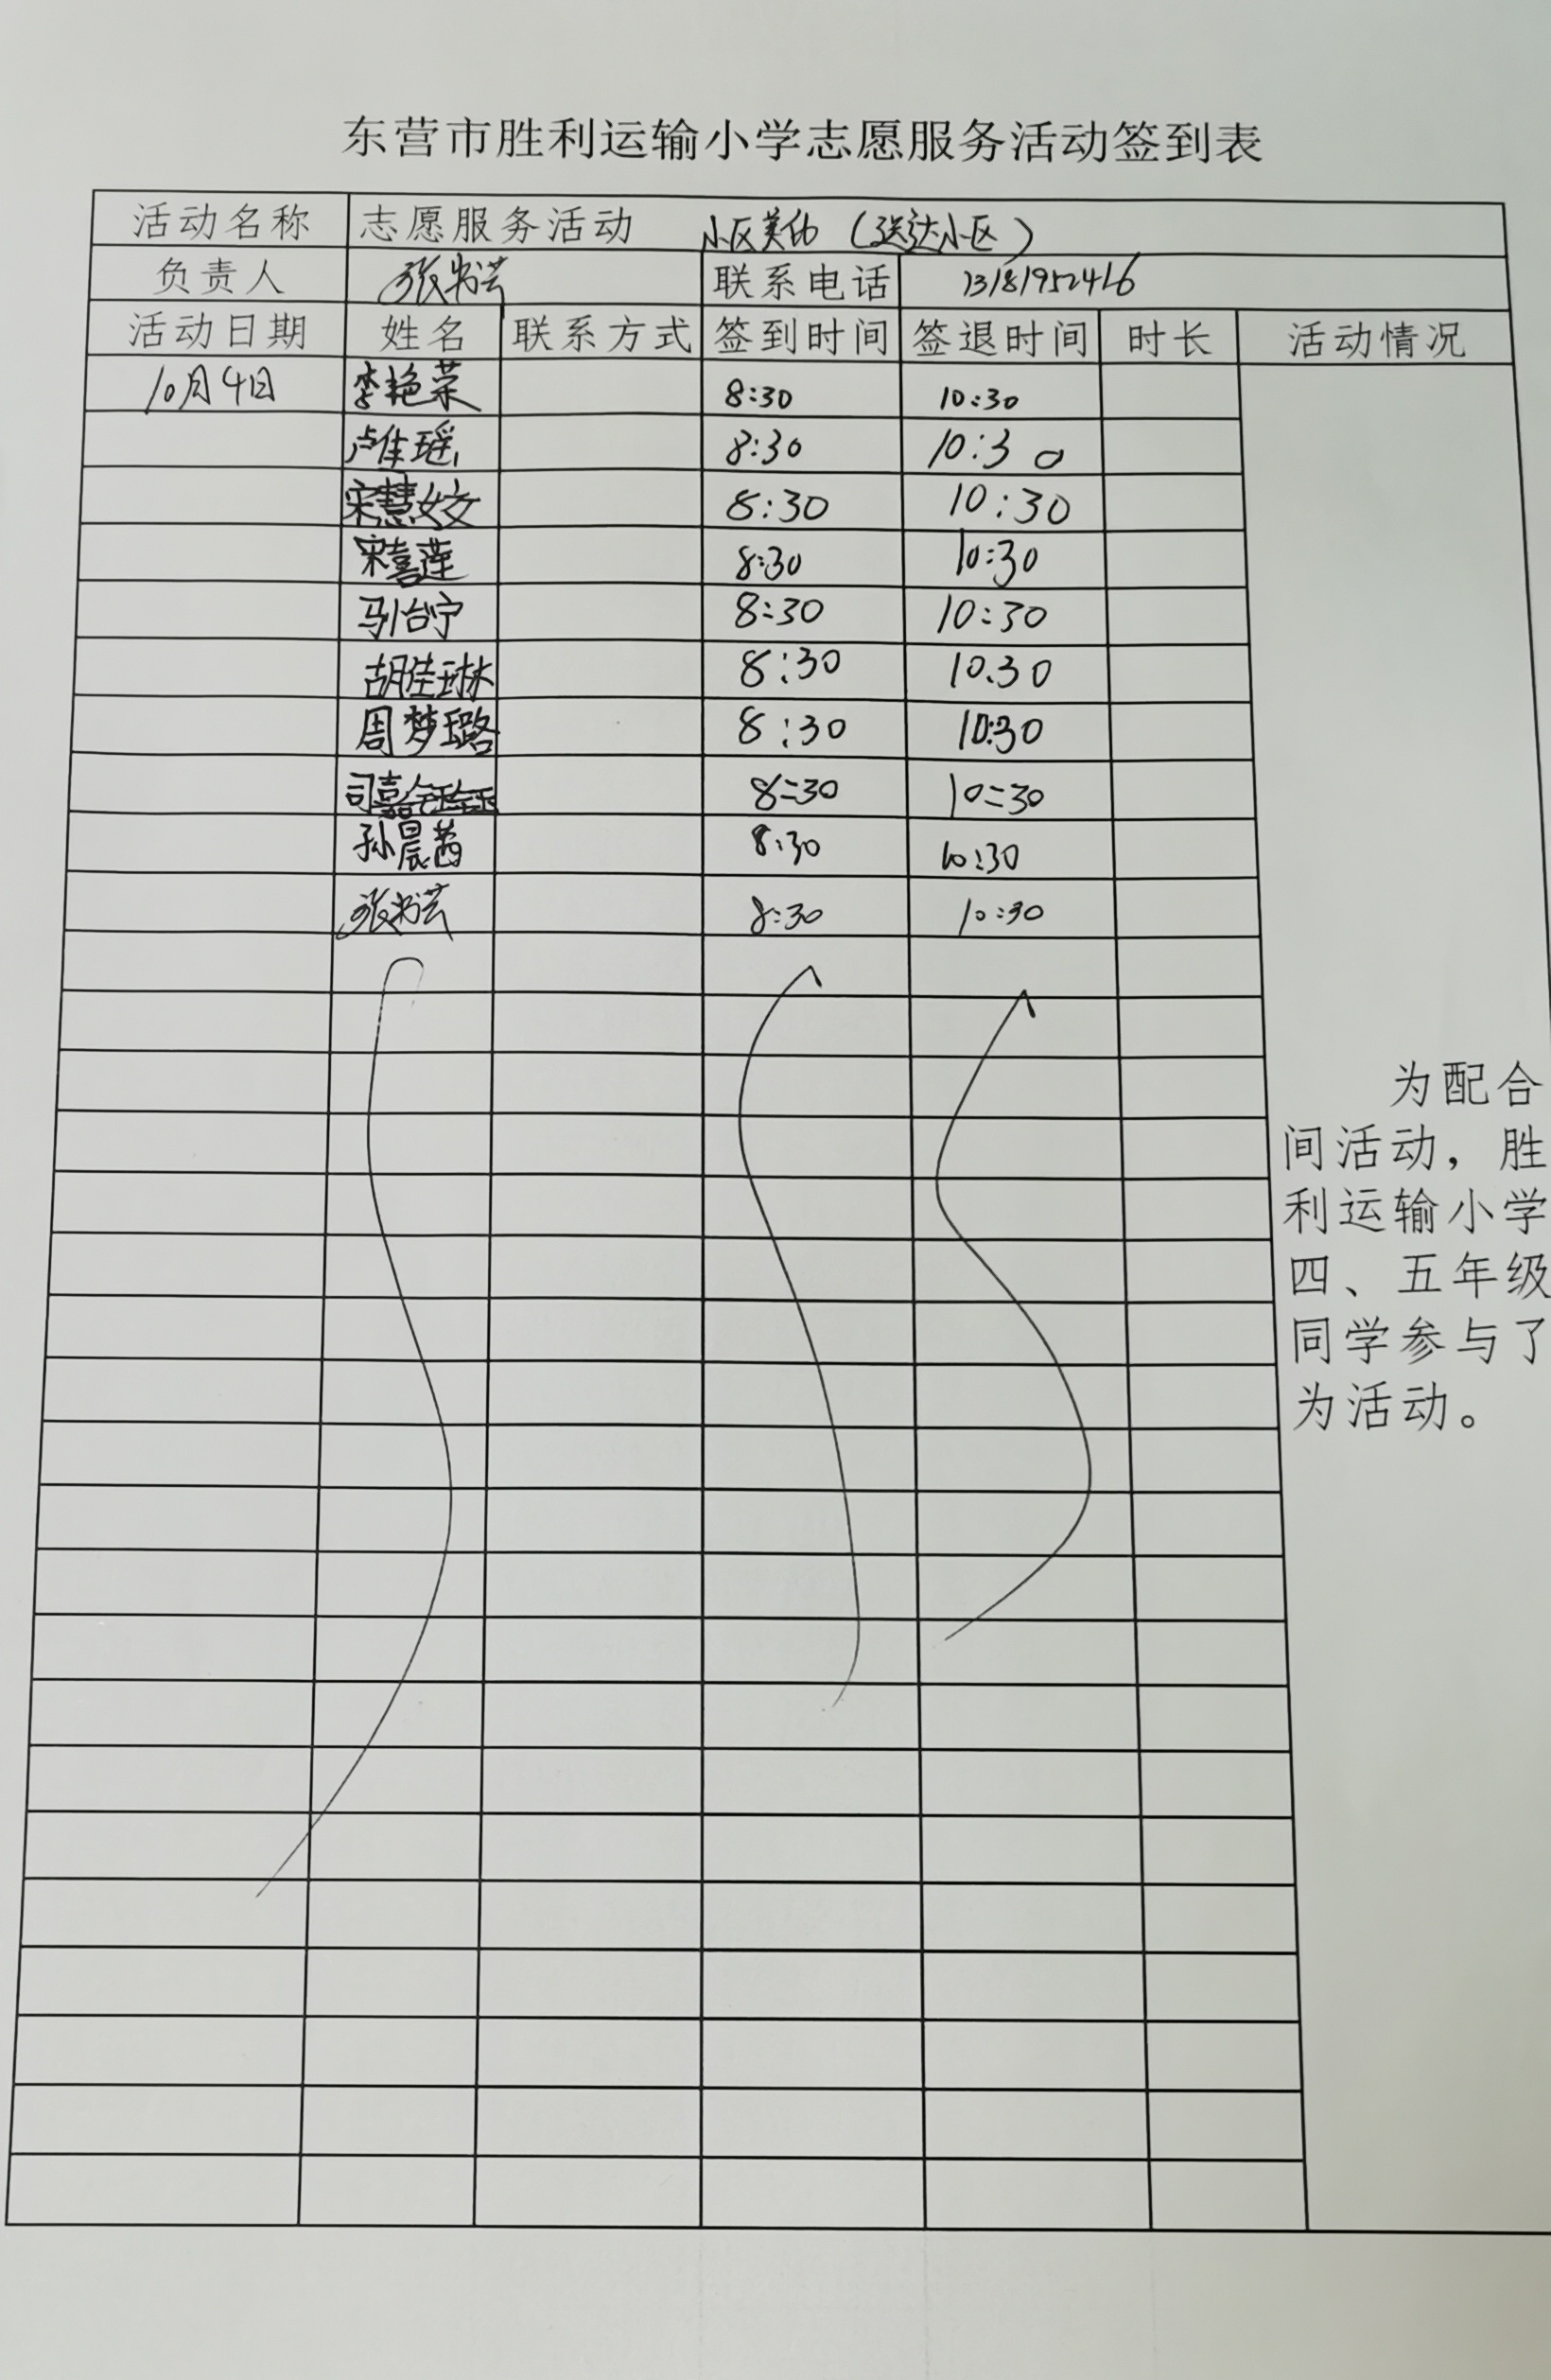 东营市胜利运输小学志愿服务活动签到表
活动名称 志愿服务活动 小区美化（运达小区）
负责人 张书芸 联系电话 13181952416
活动日期 姓名 联系方式 签到时间 签退时间 时长 活动情况
10月4日 李艳荣 8:30 10:30
卢佳瑶 8:30 10:30
宋慧妏 8:30 10:30
宋喜莲 8:30 10:30
马怡宁 8:30 10:30
胡佳琳 8:30 10.30
周梦璐 8:30 10:30
司嘉 8:30 10:30
孙晨茜 8:30 10:30
张书芸 8:30 10:30
为配合
间活动，胜
利运输小学
四、五年级
同学参与了
为活动。